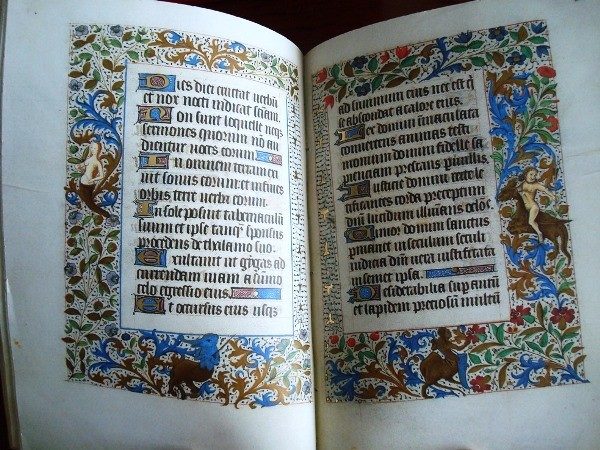 Dies diei eructat verbū
et nox nocti indicat sciam.
Non sunt loquelle neqs
sermones quorum nō au
dientur voces eorum
In omnem terram ex
iuit sonus eorum et in fines
orbis terre verba eorum.
In sole posuit tabernaculū
suum et ipse tanqȝ sponsus
procedens de thalamo suo.
Exultauit ut gygas ad
currendam uiam a sumo
celo egressio eius
Et occursus eius usqs
ad summum eius nec est qi
se abscondat a calore eius.
Lex domini immaculata
conuertens animas testi
monium domini fidele sa
pienciam prestans paruulis.
Iusticie domini recte le
tificantes corda preceptum
dnī lucidum illumīans oclōs.
Timor domini sanctus
permanet in seculum seculi
iudicia dnī uera iustificata
in semet ipsa.
Desiderabilia sup aurū
et lapidem preciosū multū